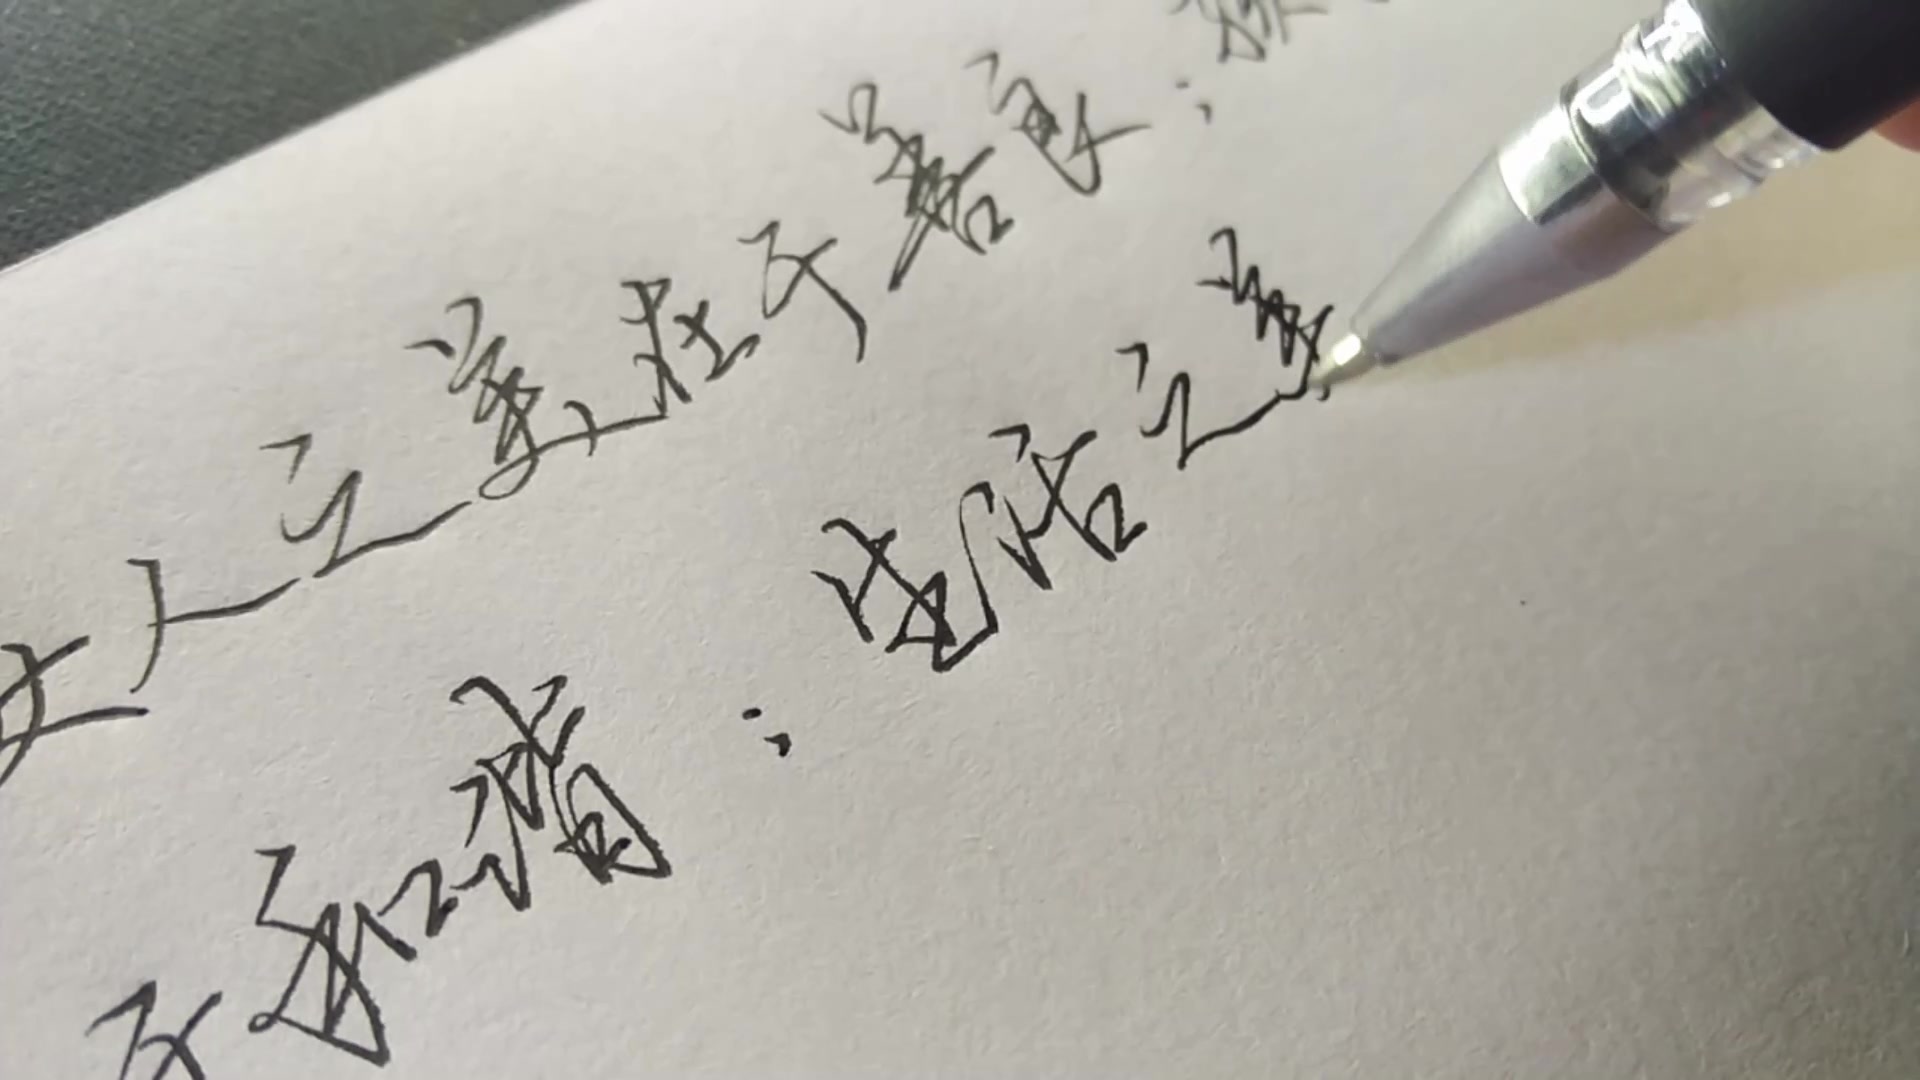 女人之美在于善良；
于和谐；生活之美